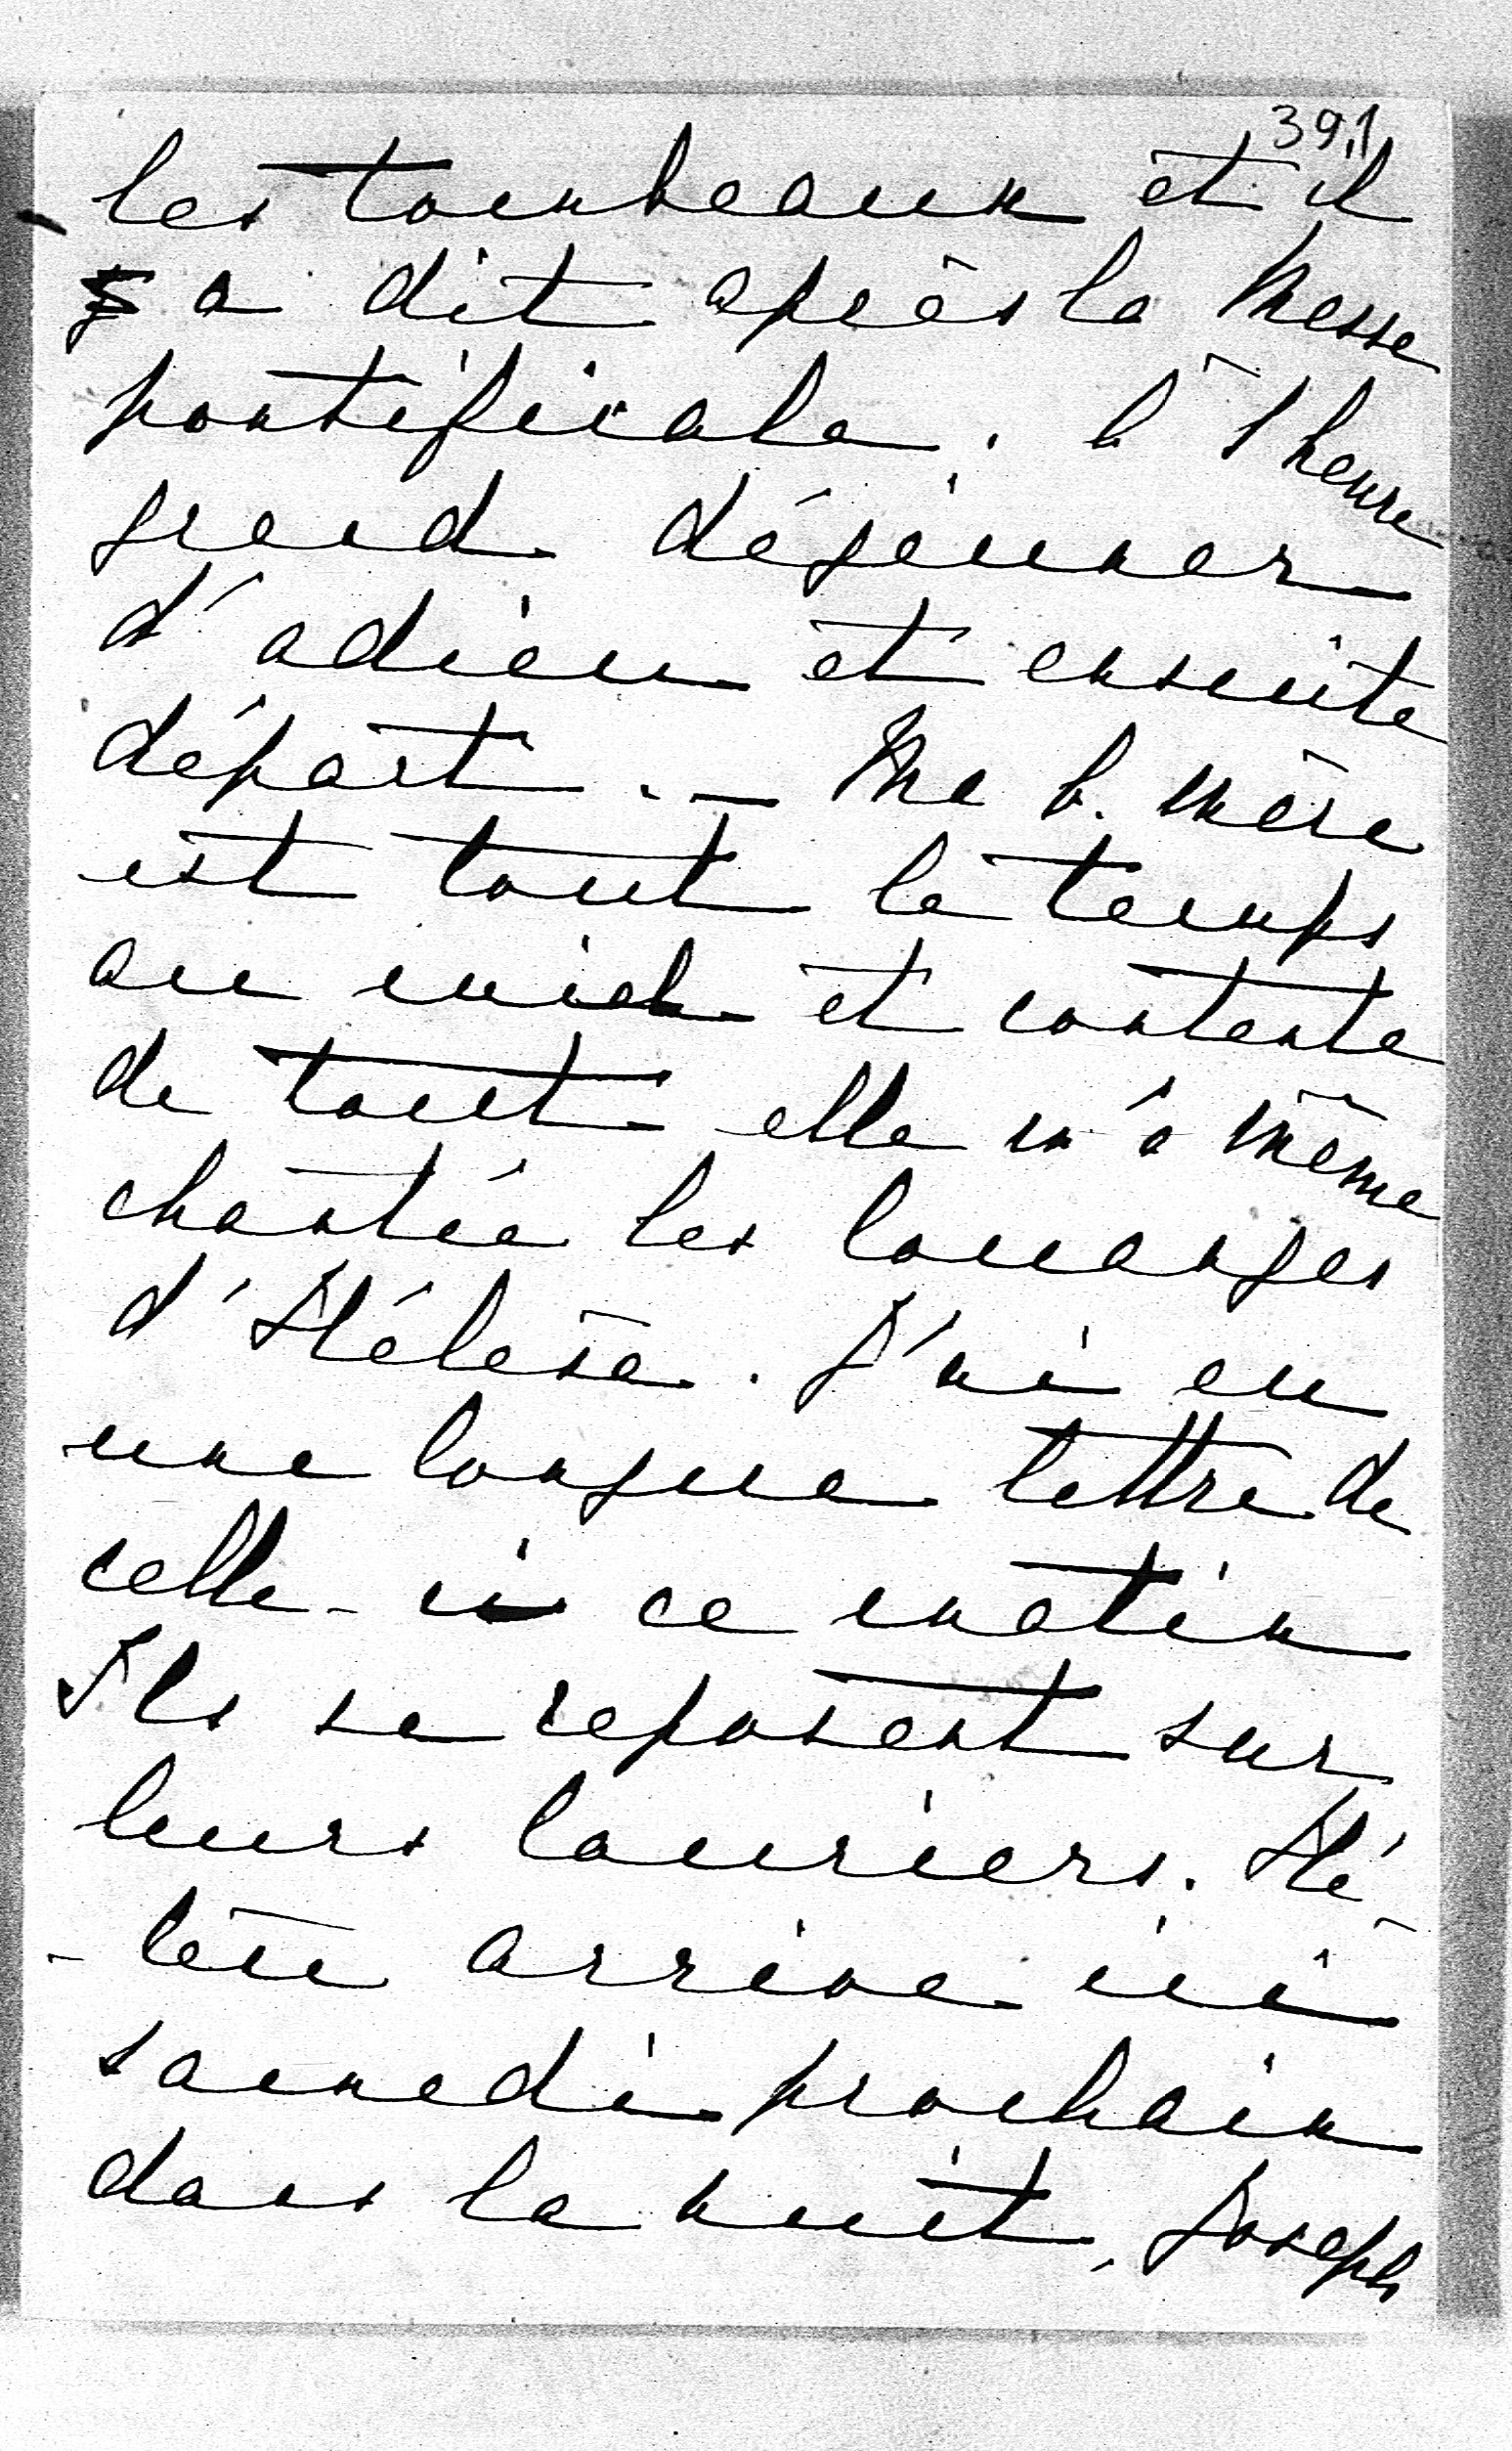 391
les tombeaux et il
a dit après la Messe
pontificale. à 1 heure
grand déjeuner
d'adieu et ensuite
départ. — Ma b. mère
est tout le temps
au miel et contente
de tout elle m'a même
chantée les louanges
d'Hélène. J'ai eu
une longue lettre de
celle-ci ce matin
Ils se reposent sur
leurs lauriers. Hé
-lène arrive ici
samedi prochain
dans la nuit, Joseph